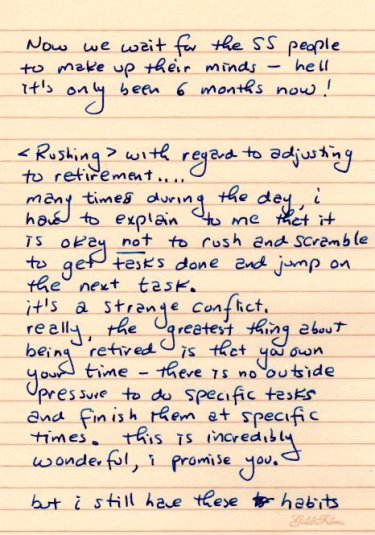 Now we wait for the SS people
to make up their minds – hell
it's only been 6 months now!
<Rushing> with regard to adjusting
to retirement....
many times during the day, i
have to explain to me that it
is okay not to rush and scramble
to get tasks done and jump on
the next task.
it's a strange conflict.
really, the greatest thing about
being retired is that you own
your time – there is no outside
pressure to do specific tasks
and finish them at specific
times. this is incredibly
wonderful, i promise you.
but i still have these habits